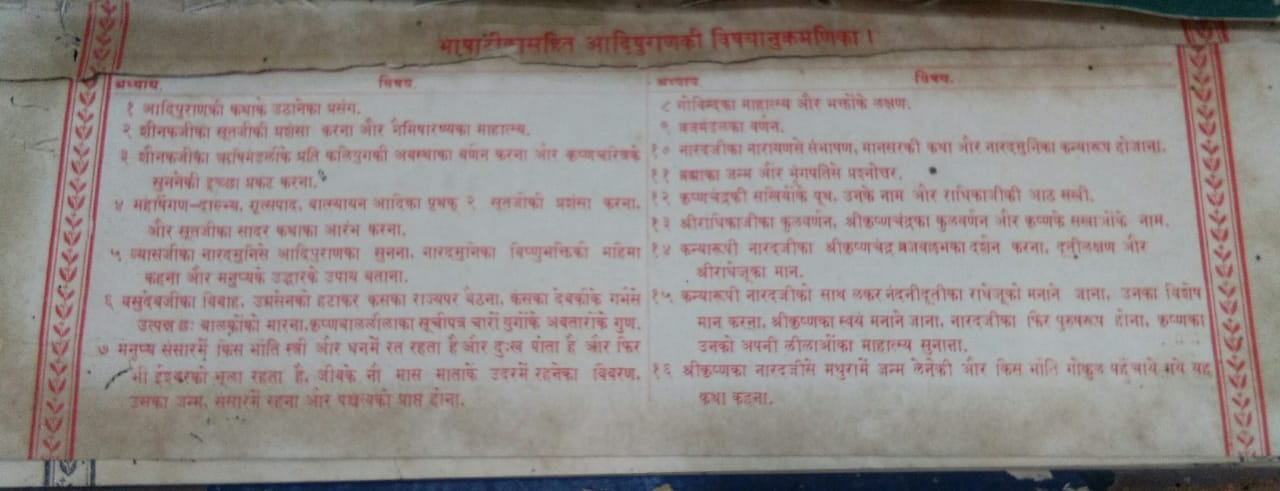 भाषाटीकासहित आदिपुराणकी विषयानुक्रमणिका ।
अध्याय. विषय.
१ आदिपुराणकी कथाके उठानेका प्रसंग.
२ शौनकजीका सूतजीकी प्रशंसा करना और नैमिषारण्यका माहात्म्य.
३ शौनकजीका ऋषिमंडलीके प्रति कलियुगकी अवस्थाका वर्णन करना और कृष्णचरित्रके
सुननेकी इच्छा प्रकट करना.
४ महर्षिगण-दालभ्य, गृत्सपाद, वात्स्यायन आदिका पृथक् २ सूतजीकी प्रशंसा करना,
और सूतजीका सादर कथाका आरंभ करना.
५ व्यासजीका नारदमुनिसे आदिपुराणका सुनना, नारदमुनिका विष्णुभक्तिकी महिमा
कहना और मनुष्यके उद्धारके उपाय बताना.
६ वसुदेवजीका विवाह, उग्रसेनको हटाकर कंसका राज्यपर बैठना, कंसका देवकीके गर्भसे
उत्पन्न छः बालकोंको मारना, कृष्णबाललीलाका सूचीपत्र चारों युगोंके अवतारोंके गुण.
७ मनुष्य संसारमें किस भाँति स्त्री और धनमें रत रहता है और दुःख पाता है और फिर
भी ईश्वरको भूला रहता है, जीवके नौ मास माताके उदरमें रहनेका विवरण,
उसका जन्म, संसारमें रहना और पञ्चत्वको प्राप्त होना.
अध्याय. विषय.
८ गोविन्दका माहात्म्य और भक्तोंके लक्षण.
९ व्रजमंडलका वर्णन.
१० नारदजीका नारायणसे संभाषण, मानसरकी कथा और नारदमुनिका कन्यारूप होजाना.
११ ब्रह्माका जन्म और भृंगपतिसे प्रश्नोत्तर.
१२ कृष्णचंद्रकी सखियोंके यूथ, उनके नाम और राधिकाजीकी आठ सखी.
१३ श्रीराधिकाजीका कुलवर्णन, श्रीकृष्णचंद्रका कुलवर्णन और कृष्णके सखाओंके नाम.
१४ कन्यारूपी नारदजीका श्रीकृष्णचंद्र व्रजवल्लभका दर्शन करना, दूतीलक्षण और
श्रीराधेजूका मान.
१५ कन्यारूपी नारदजीको साथ लेकर नंदनीदूतीका राधेजूको मनाने जाना, उनका विशेष
मान करना, श्रीकृष्णका स्वयं मनाने जाना, नारदजीका फिर पुरुषरूप होना, कृष्णका
उनको अपनी लीलाओंका माहात्म्य सुनाना.
१६ श्रीकृष्णका नारदजीसे मथुरामें जन्म लेनेकी और किस भाँति गोकुल पहुँचाये गये यह
कथा कहना.